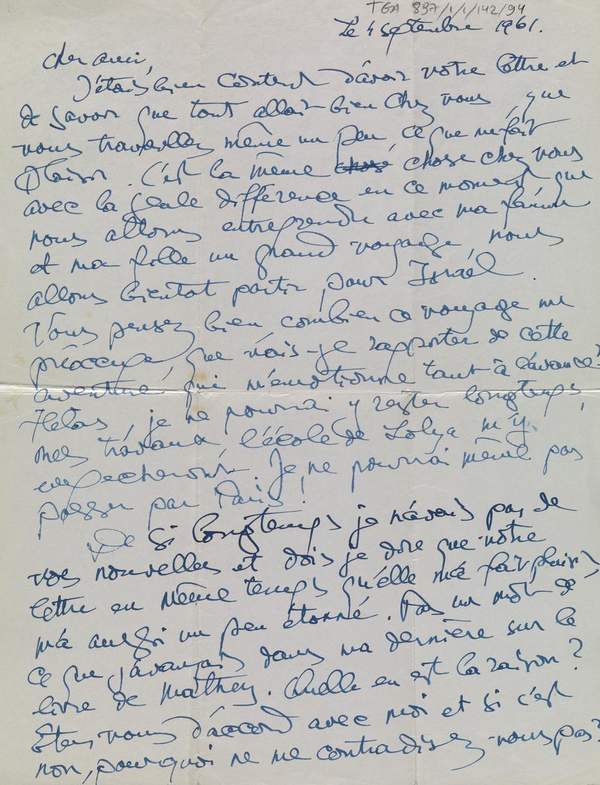 TGA 897/1/1/142/94
Le 4 septembre 1961.
cher ami,
J'étais bien content d'avoir votre lettre et
de savoir que tout allait bien chez vous, que
vous travaillez même un peu ce que me fait
plaisir. C'est la même chose chez vous
avec la seule différence en ce moment que
nous allons entreprendre avec ma femme
et ma fille un grand voyage, nous
allons bientot partir pour Israél.
Vous pensez bien combien ce voyage me
préoccupe, que vais-je rapporter de cette
aventure, qui m'émotionne tant à l'avance?
Hélas, je ne pourrai y rester longtemps,
mes travaux l'école de m'y
empecheront. Je ne pourrai même pas
passer par Paris!
De si longtemps je n'avais pas de
vos nouvelles et dois je dire que votre
lettre en même temps qu'elle m'a fait plaisir
m'a aussi un peu étonné. Pas un mot de
ce que j'avançais dans ma dernière sur le
livre de Mathey. Quelle en est la raison?
Etes-vous d'accord avec moi et si c'est
non, pourquoi ne me contradisez-vous pas?